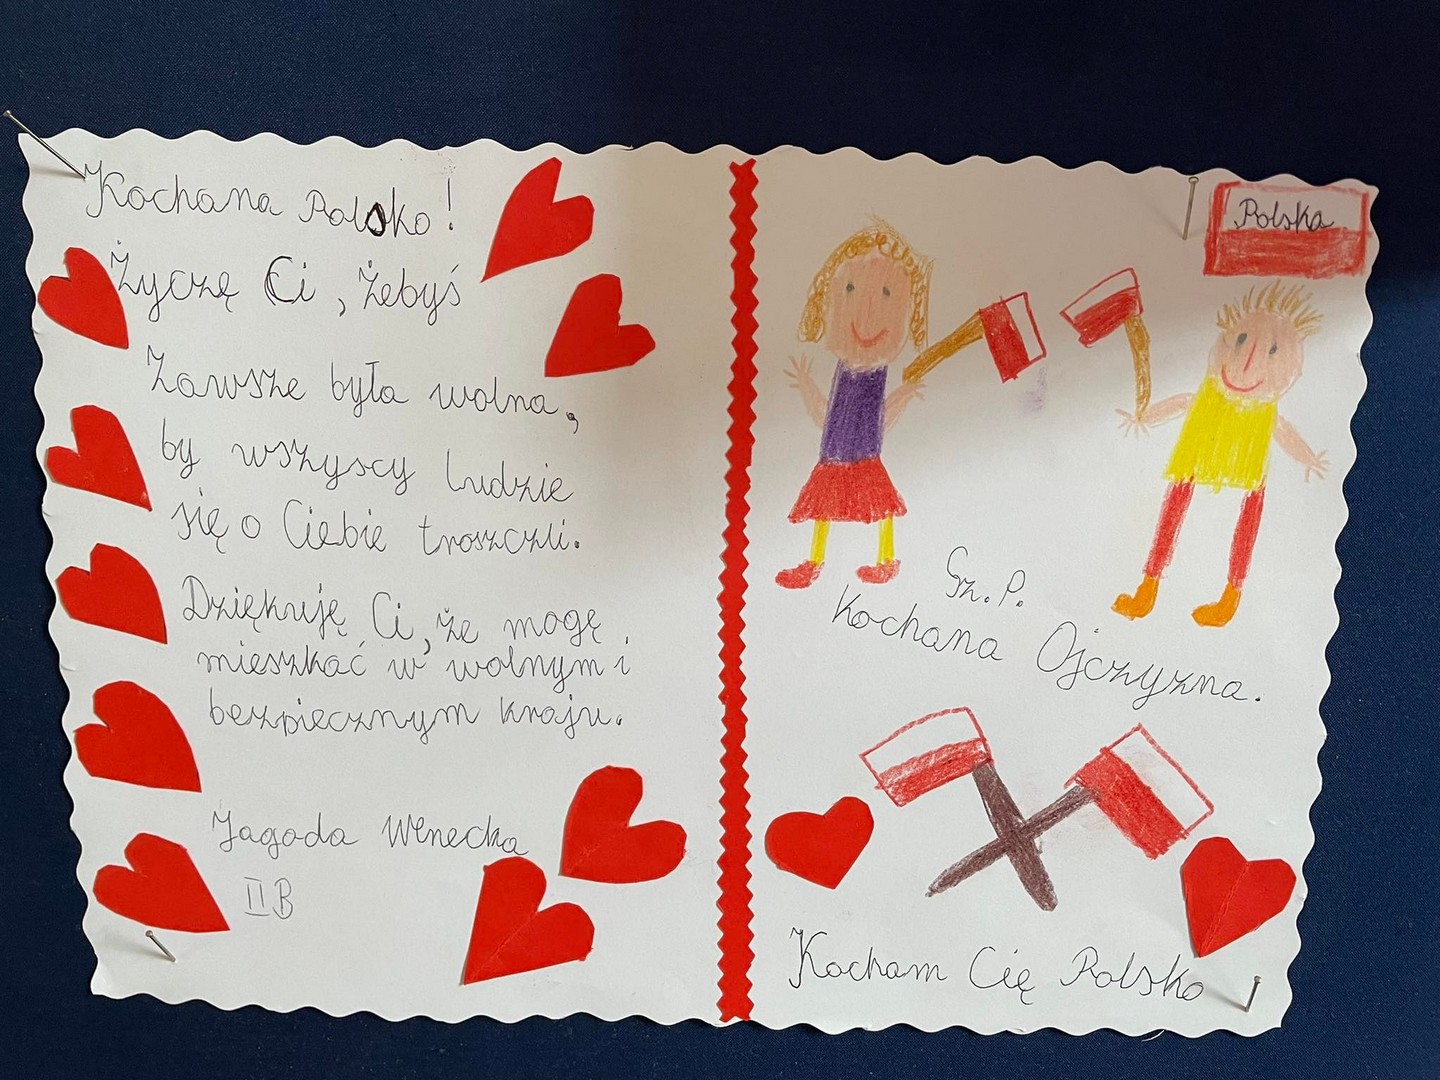 Kochana Polsko!
Życzę Ci, żebyś
Zawsze była wolna,
by wszyscy ludzie
się o Ciebie troszczli.
Dziękuję Ci, że mogę
mieszkać w wolnym i
bezpiecznym kraju.
Jagoda Wenecka
II B
Polska
Sz. P.
Kochana Ojczyzna.
Kocham Cię Polsko